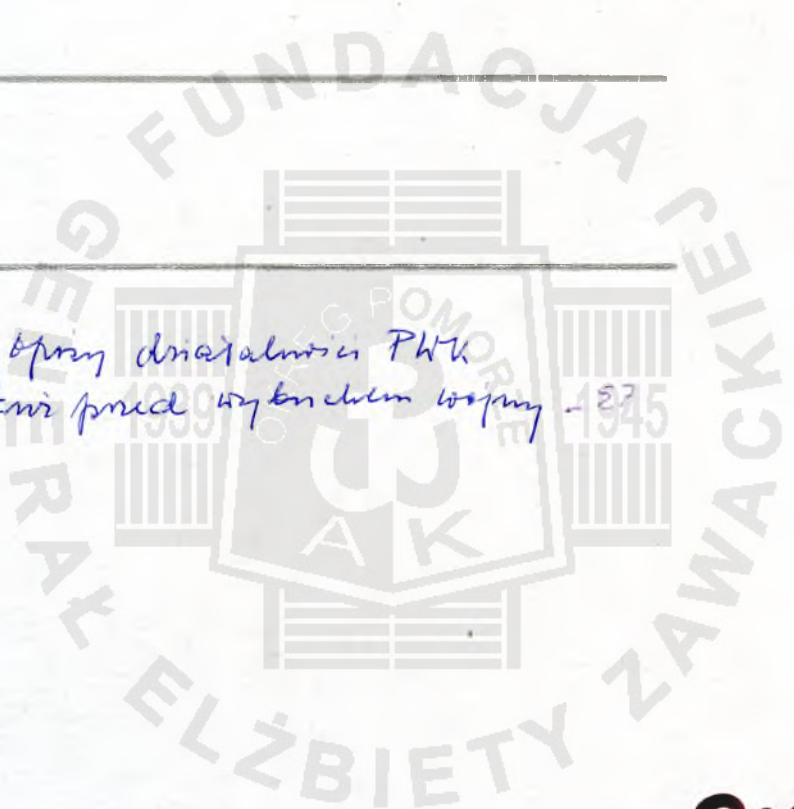 FUNDACJA
GENERAŁ ELŻBIETY ZAWACKIEJ
OKRĘG POMORZE
1939 1945
AK
opisy działalności PWK
tuż przed wybuchem wojny -